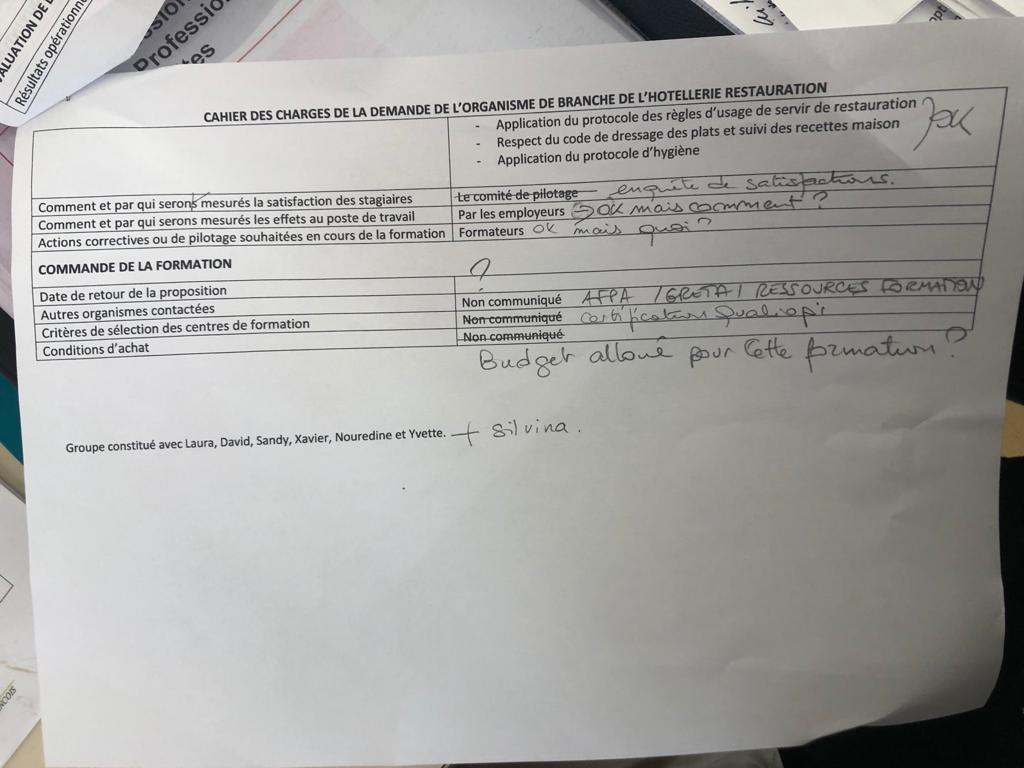 ALUATION DE
Résultats opérationne
Profession
tes
CAHIER DES CHARGES DE LA DEMANDE DE L'ORGANISME DE BRANCHE DE L'HOTELLERIE RESTAURATION
- Application du protocole des règles d'usage de servir de restauration
- Respect du code de dressage des plats et suivi des recettes maison
- Application du protocole d'hygiène
OK
Comment et par qui serons mesurés la satisfaction des stagiaires
Le comité de pilotage enquête de satisfactions.
Comment et par qui serons mesurés les effets au poste de travail
Par les employeurs OK mais comment ?
Actions correctives ou de pilotage souhaitées en cours de la formation
Formateurs OK mais quoi ?
COMMANDE DE LA FORMATION
Date de retour de la proposition
?
Autres organismes contactées
Non communiqué AFPA / GRETA / RESSOURCES FORMATION
Critères de sélection des centres de formation
Non communiqué certification Qualiopi
Conditions d'achat
Non communiqué
Budget alloué pour cette formation ?
Groupe constitué avec Laura, David, Sandy, Xavier, Nouredine et Yvette. + Silvina.